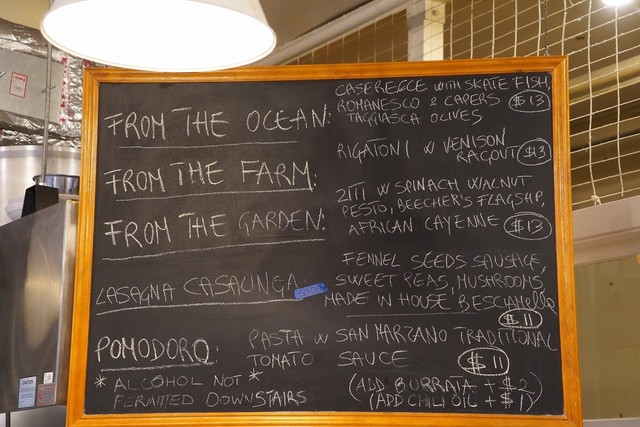 CASERECCE WITH SKATE FISH,
FROM THE OCEAN: ROMANESCO & CAPERS $13
TAGGIASCA OLIVES
FROM THE FARM: RIGATONI W VENISON
RAGOUT $13
FROM THE GARDEN: ZITI W SPINACH WALNUT
PESTO, BEECHER'S FLAGSHIP,
AFRICAN CAYENNE $13
LASAGNA CASALINGA FENNEL SEEDS SAUSAGE,
SWEET PEAS, MUSHROOMS,
MADE IN HOUSE BESCIAMELLA
$11
POMODORO: PASTA W SAN MARZANO TRADITIONAL
TOMATO SAUCE $11
*ALCOHOL NOT* (ADD BURRATA + $2)
PERMITTED DOWNSTAIRS (ADD CHILI OIL + $1)